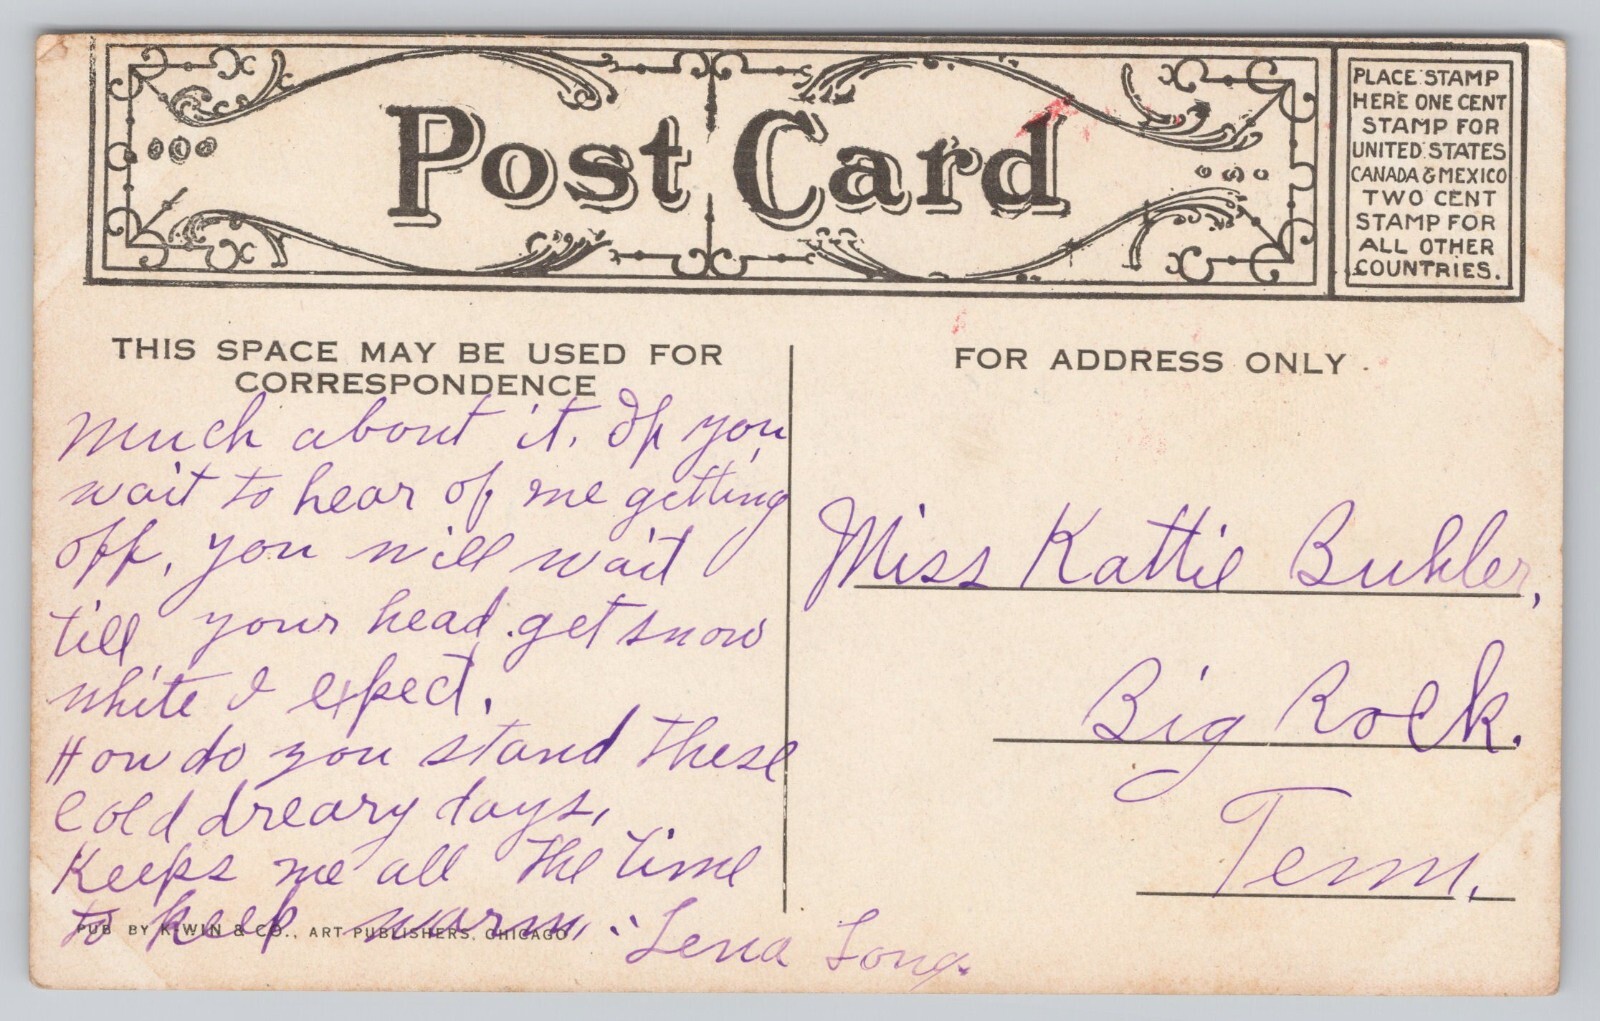 Post Card
PLACE STAMP
HERE ONE CENT
STAMP FOR
UNITED STATES
CANADA & MEXICO
TWO CENT
STAMP FOR
ALL OTHER
COUNTRIES.
THIS SPACE MAY BE USED FOR
CORRESPONDENCE
much about it. If you
wait to hear of me getting
off, you will wait
till your head get snow
white I expect.
How do you stand these
cold dreary days,
Keeps me all the time
to keep warm. Lena Long.
PUB BY K-WIN & CO., ART PUBLISHERS, CHICAGO
FOR ADDRESS ONLY
Miss Kattie Buhler,
Big Rock.
Tenn.